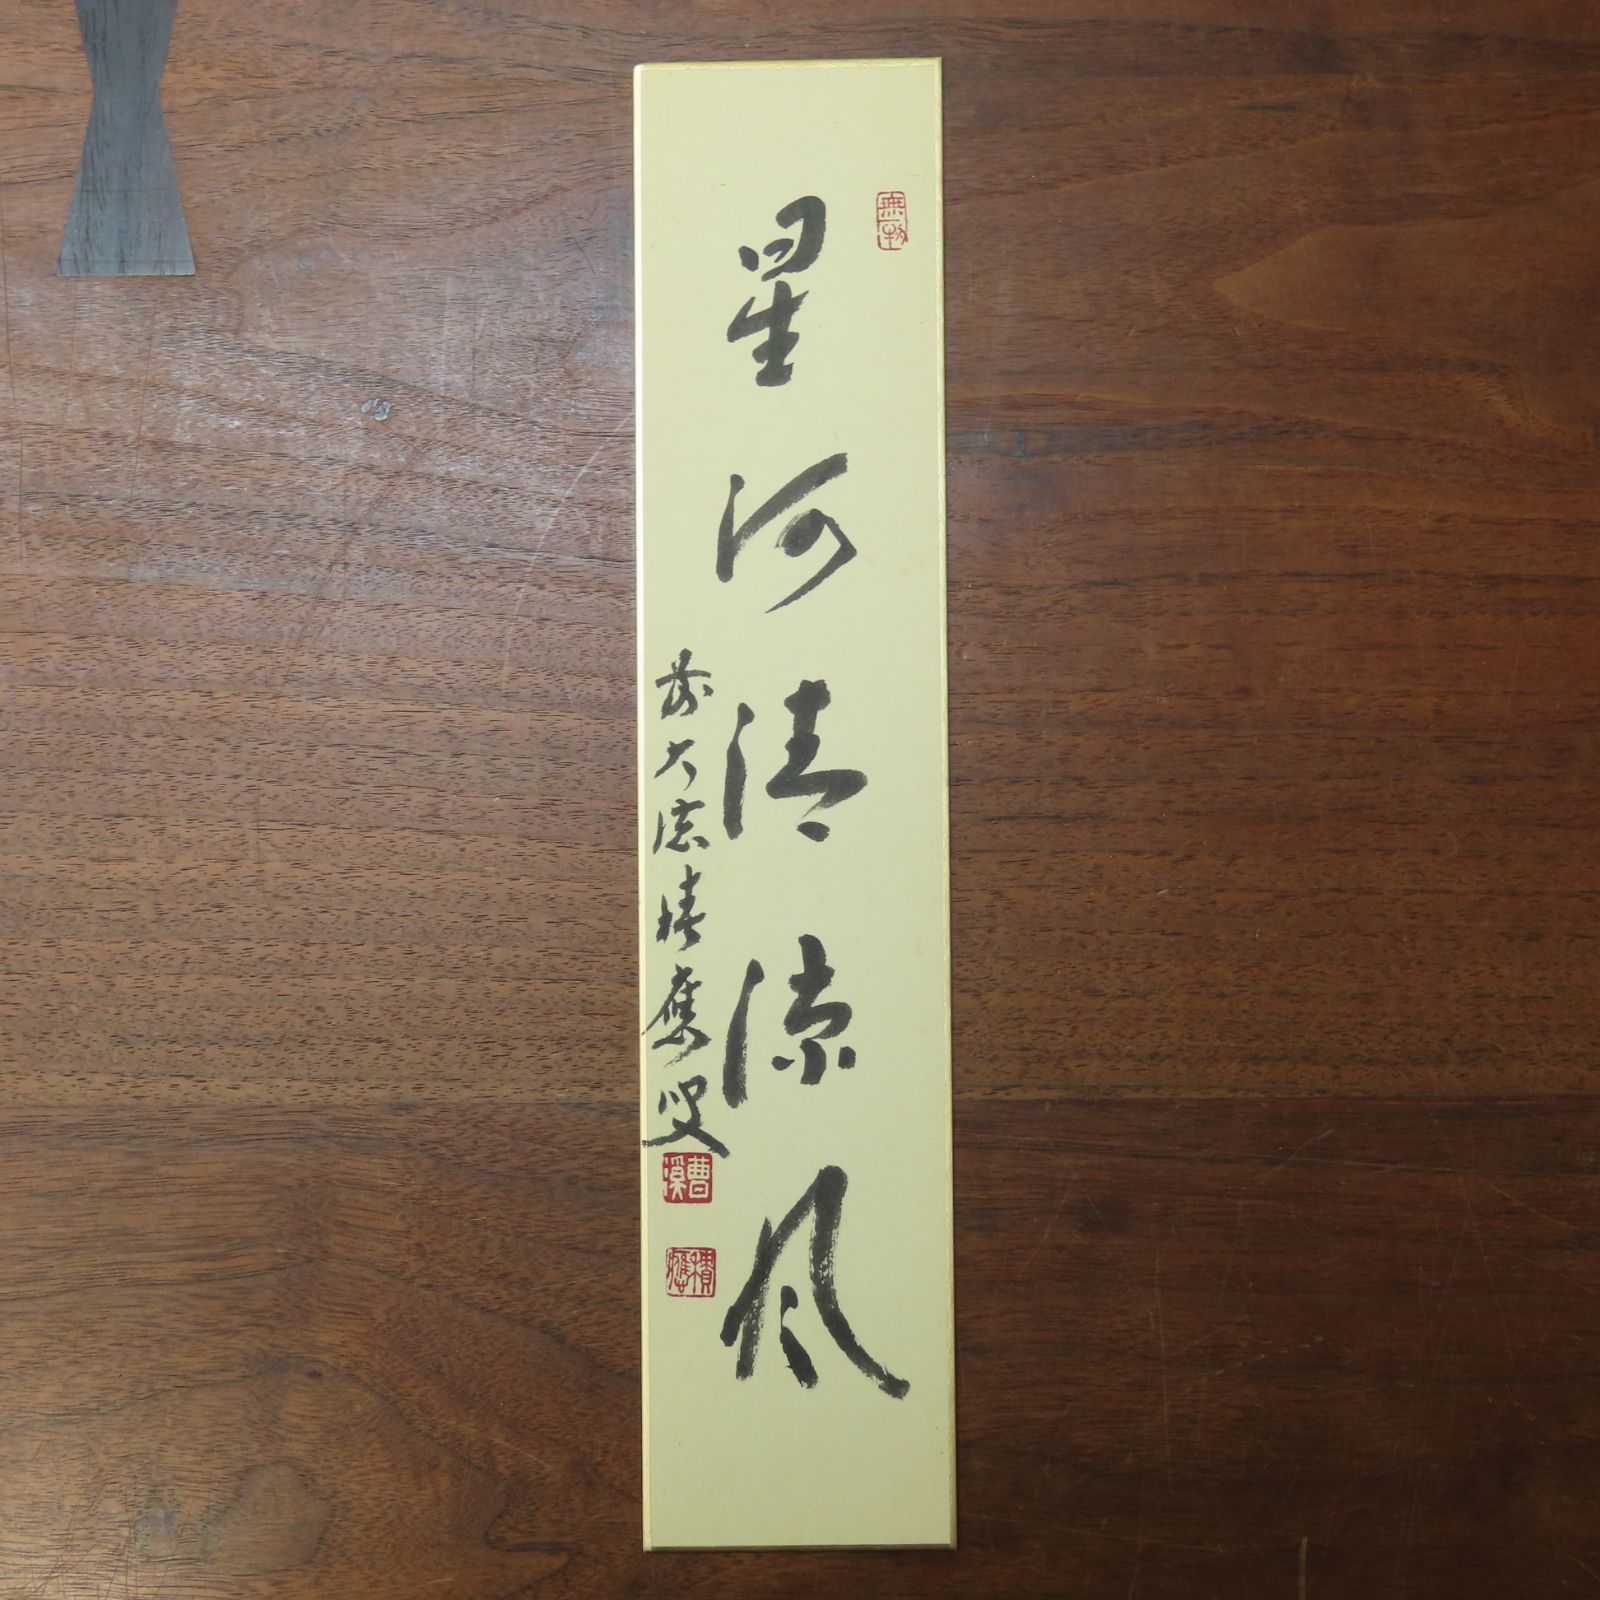 無功
星河清涼風
前大徳積應叟
曹溪
積應